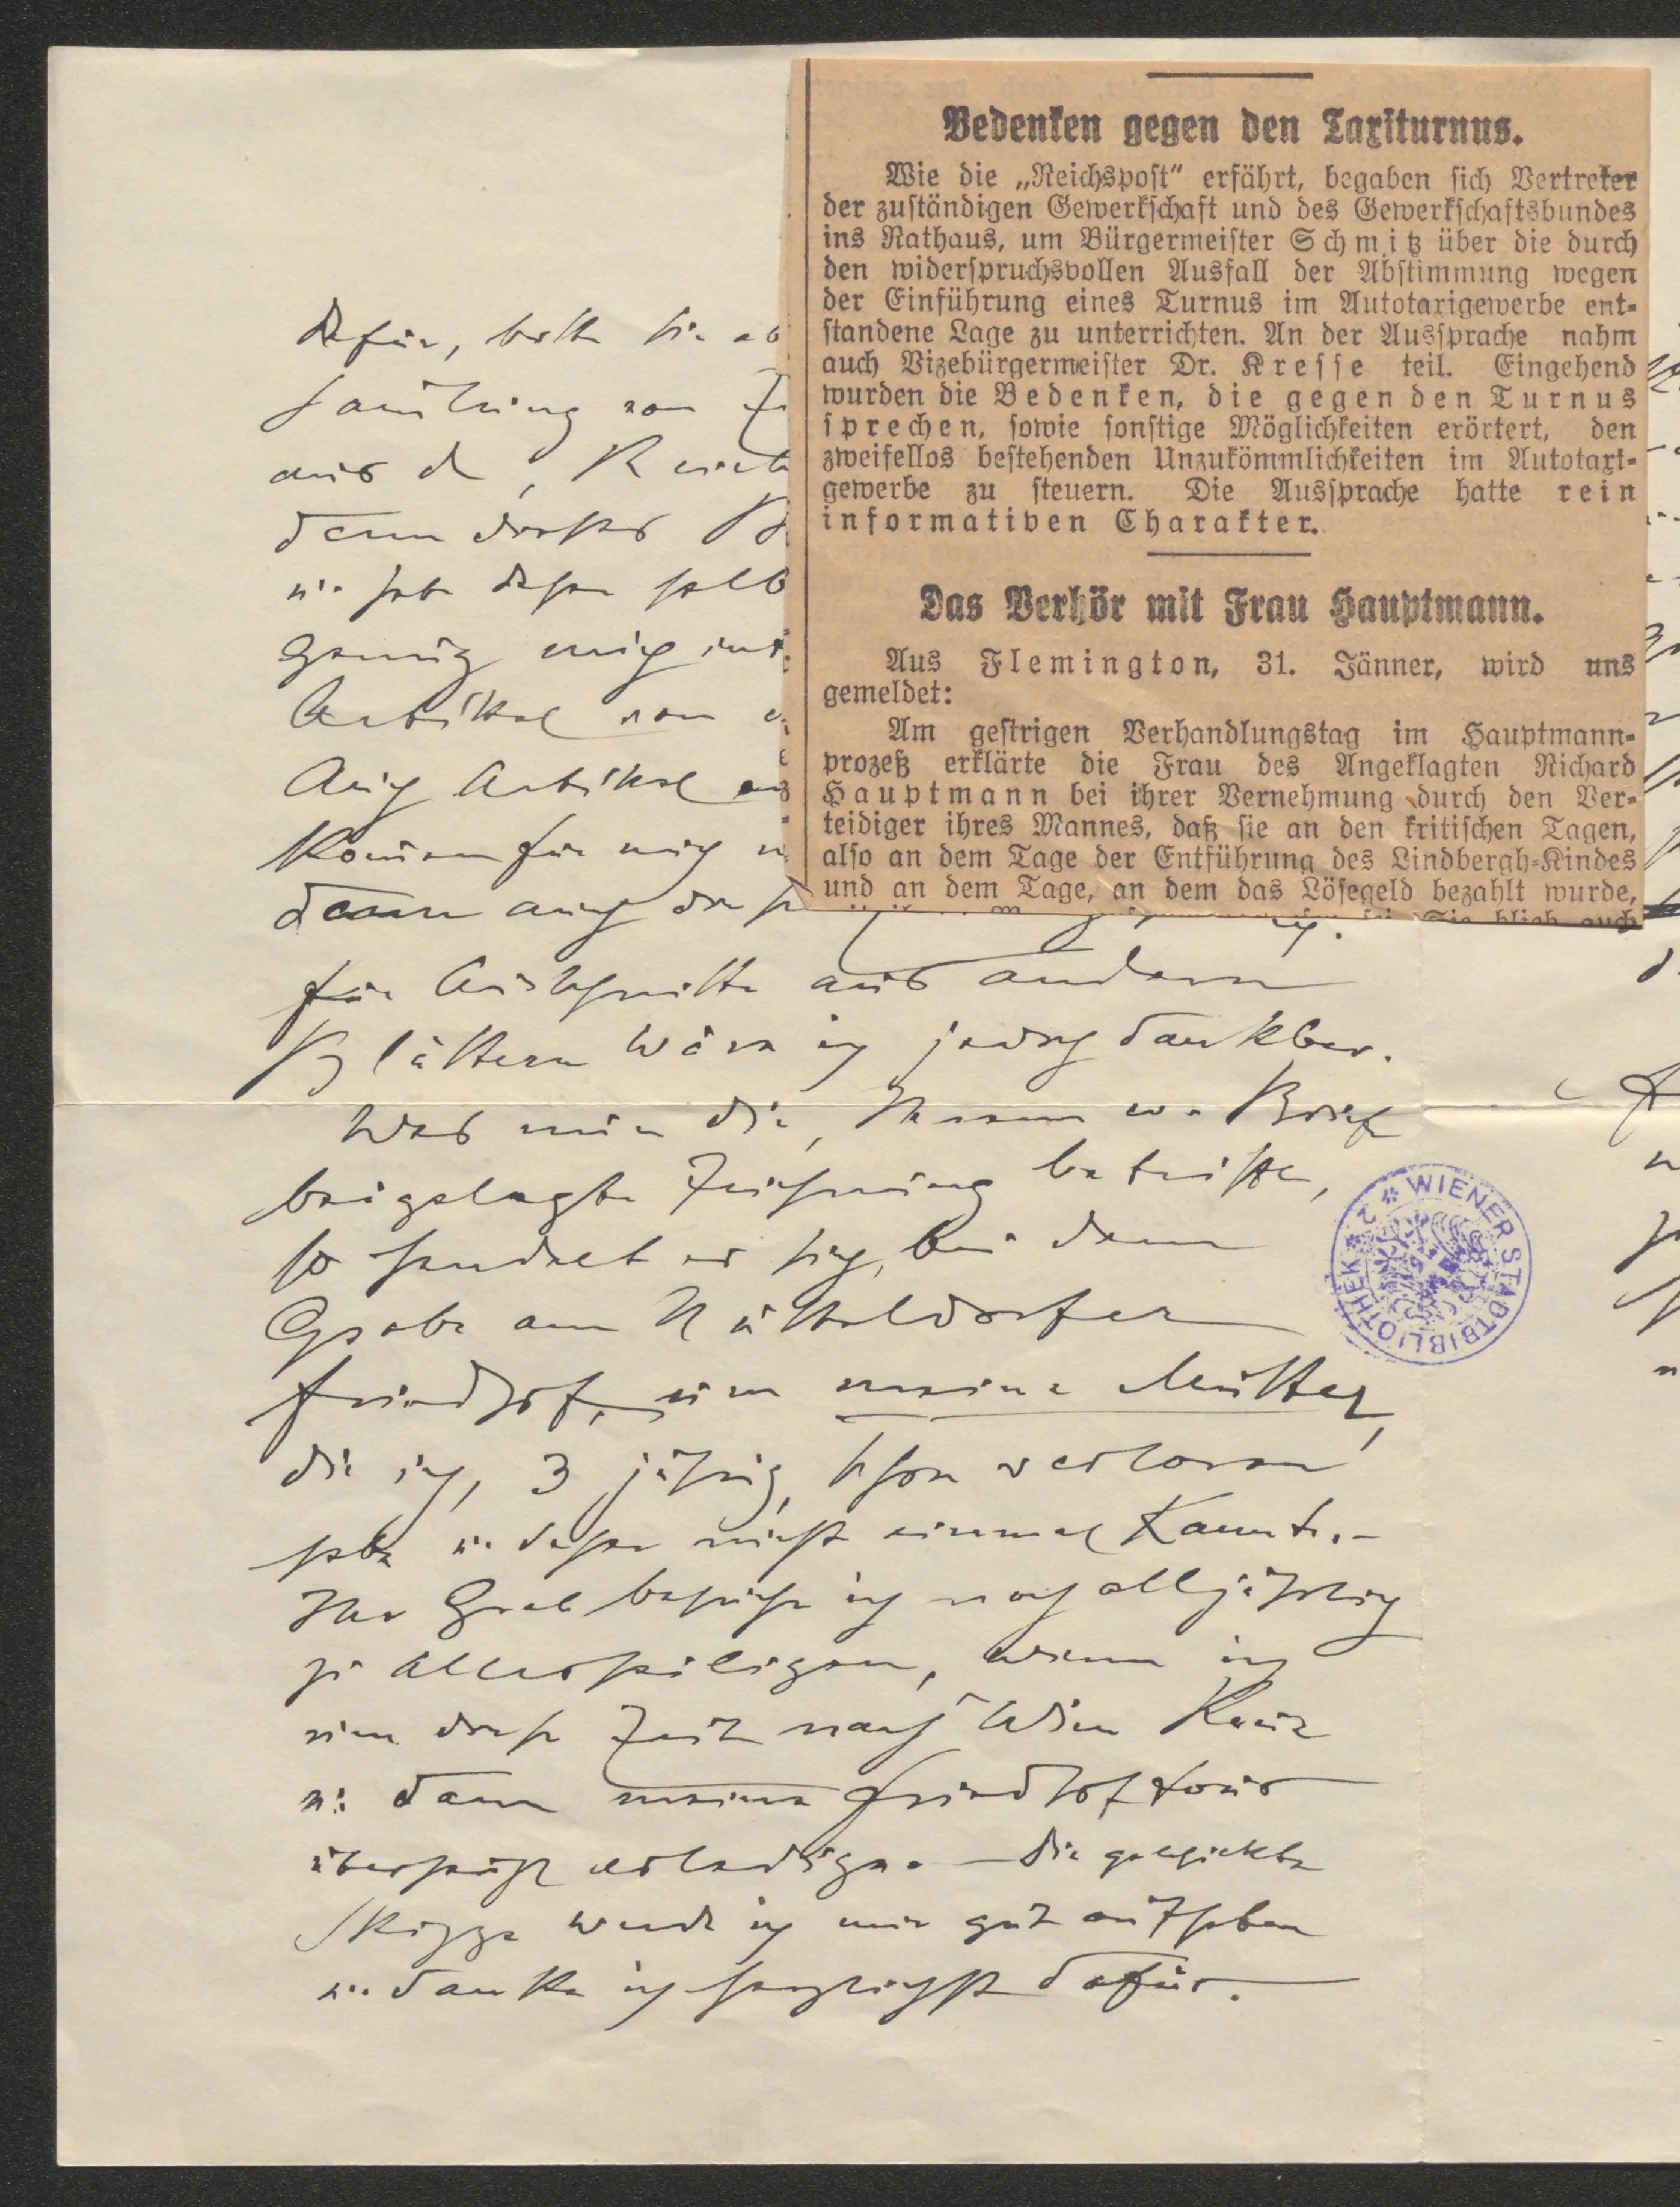 Bedenken gegen den Taxiturnus.
Wie die „Reichspost“ erfährt, begaben sich Vertreter
der zuständigen Gewerkschaft und des Gewerkschaftsbundes
ins Rathaus, um Bürgermeister Schmitz über die durch
den widerspruchsvollen Ausfall der Abstimmung wegen
der Einführung eines Turnus im Autotaxigewerbe ent-
standene Lage zu unterrichten. An der Aussprache nahm
auch Vizebürgermeister Dr. Kresse teil. Eingehend
wurden die Bedenken, die gegen den Turnus
sprechen, sowie sonstige Möglichkeiten erörtert, den
zweifellos bestehenden Unzukömmlichkeiten im Autotaxi-
gewerbe zu steuern. Die Aussprache hatte rein
informativen Charakter.
Das Verhör mit Frau Hauptmann.
Aus Flemington, 31. Jänner, wird uns
gemeldet:
Am gestrigen Verhandlungstag im Hauptmann-
prozeß erklärte die Frau des Angeklagten Richard
Hauptmann bei ihrer Vernehmung durch den Ver-
teidiger ihres Mannes, daß sie an den kritischen Tagen,
also an dem Tage der Entführung des Lindbergh-Kindes
und an dem Tage, an dem das Lösegeld bezahlt wurde,
Sie blieb auch
dafür, bitte Sie
von
aus der
denn dieses
u. habe daher selb
Artikel von
Auch Artikel
kommen für mich
dann auch
für Ausschnitte aus andern
Blättern wäre ich jedoch dankbar.
Was nun die, Ihrem w. Briefe
beigelegte Zeichnung betrifft,
so handelt es sich, bei dem
Grabe am Hütteldorfer
Friedhof, um meine Mutter,
die ich, 3 jährig, schon verloren
habe u. daher nicht einmal kannte.–
Ihr Grab besuche ich noch alljährlich
zu Allerheiligen, wenn ich
um diese Zeit nach Wien komme
u. dann meine Friedhoftour
überhaupt erledige. – Die geschickte
Skizze werde ich mir gut aufheben
u. danke ich herzlichst dafür.
WIENER STADTBIBLIOTHEK